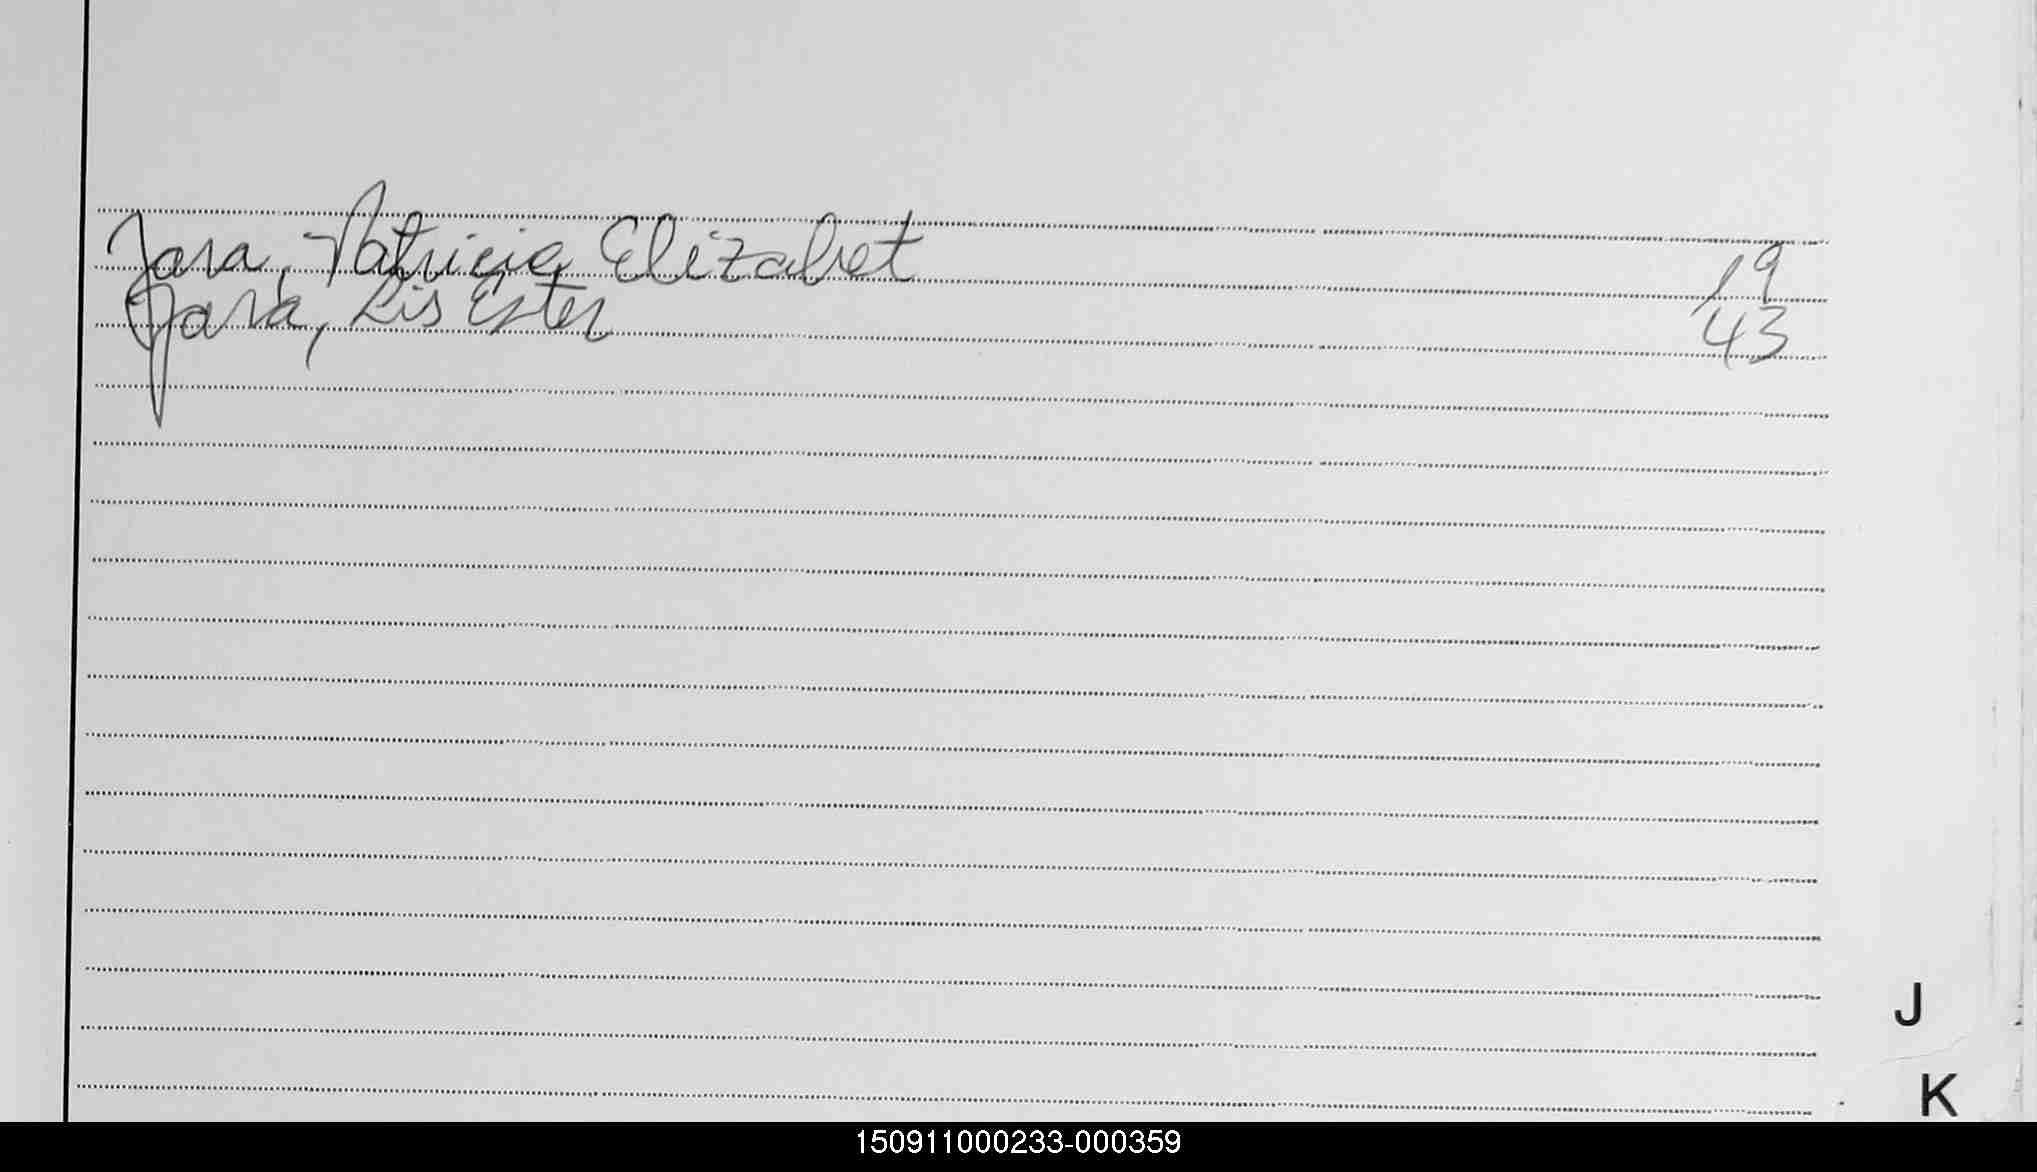 Jara, Patricia Elizabet 19
Jara, Lis Ester 43
J
K
150911000233-000359